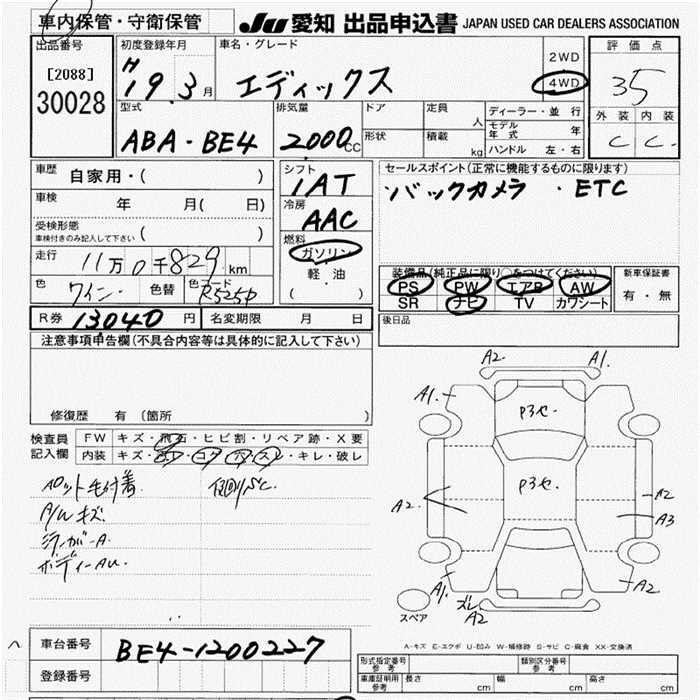 車内保管・守衛保管
JU 愛知 出品申込書 JAPAN USED CAR DEALERS ASSOCIATION
出品番号
[2088]
30028
初度登録年月
H 19. 3 月
車名・グレード
エディックス
2WD
4WD
評価点
3.5
外装 内装
C C.
型式
ABA-BE4
排気量
2000 CC
ドア
形状
定員 人
積載 kg
ディーラー・並行
モデル年式 年
ハンドル 左・右
車歴 自家用・( )
車検 年 月( 日)
受検形態
車検付きのみ記入して下さい ( )
走行 11万0千829 km
色 ワイン. 色替 色コード R525P
シフト
IAT
冷房
AAC
燃料
ガソリン
軽・油
( )
セールスポイント(正常に機能するものに限ります)
バックカメラ ・ETC
装備品(純正品に限り○をつけてください)
PS PW エアB AW
SR ナビ TV カワシート
新車保証書
有・無
R券 13040 円 名変期限 月 日
後日品
注意事項申告欄(不具合内容等は具体的に記入して下さい)
修復歴 有 (箇所 )
検査員記入欄
FW キズ・飛石・ヒビ割・リペア跡・X要
内装 キズ・ヨゴレ・コゲ・穴・スレ・キレ・破レ
A/Wキズ
A2. A1.
A1.
P3セ
P3セ.
A2
A2
A3
A1.
ズレ
A2
A2
スペア
A-キズ E-エクボ U-凹み W-補修跡 S-サビ C-腐食 XX-交換済
車台番号 BE4-1200227
登録番号
形式指定番号 参考
類別区分番号 参考
車庫証明用 参考 長さ cm 幅 cm 高さ cm